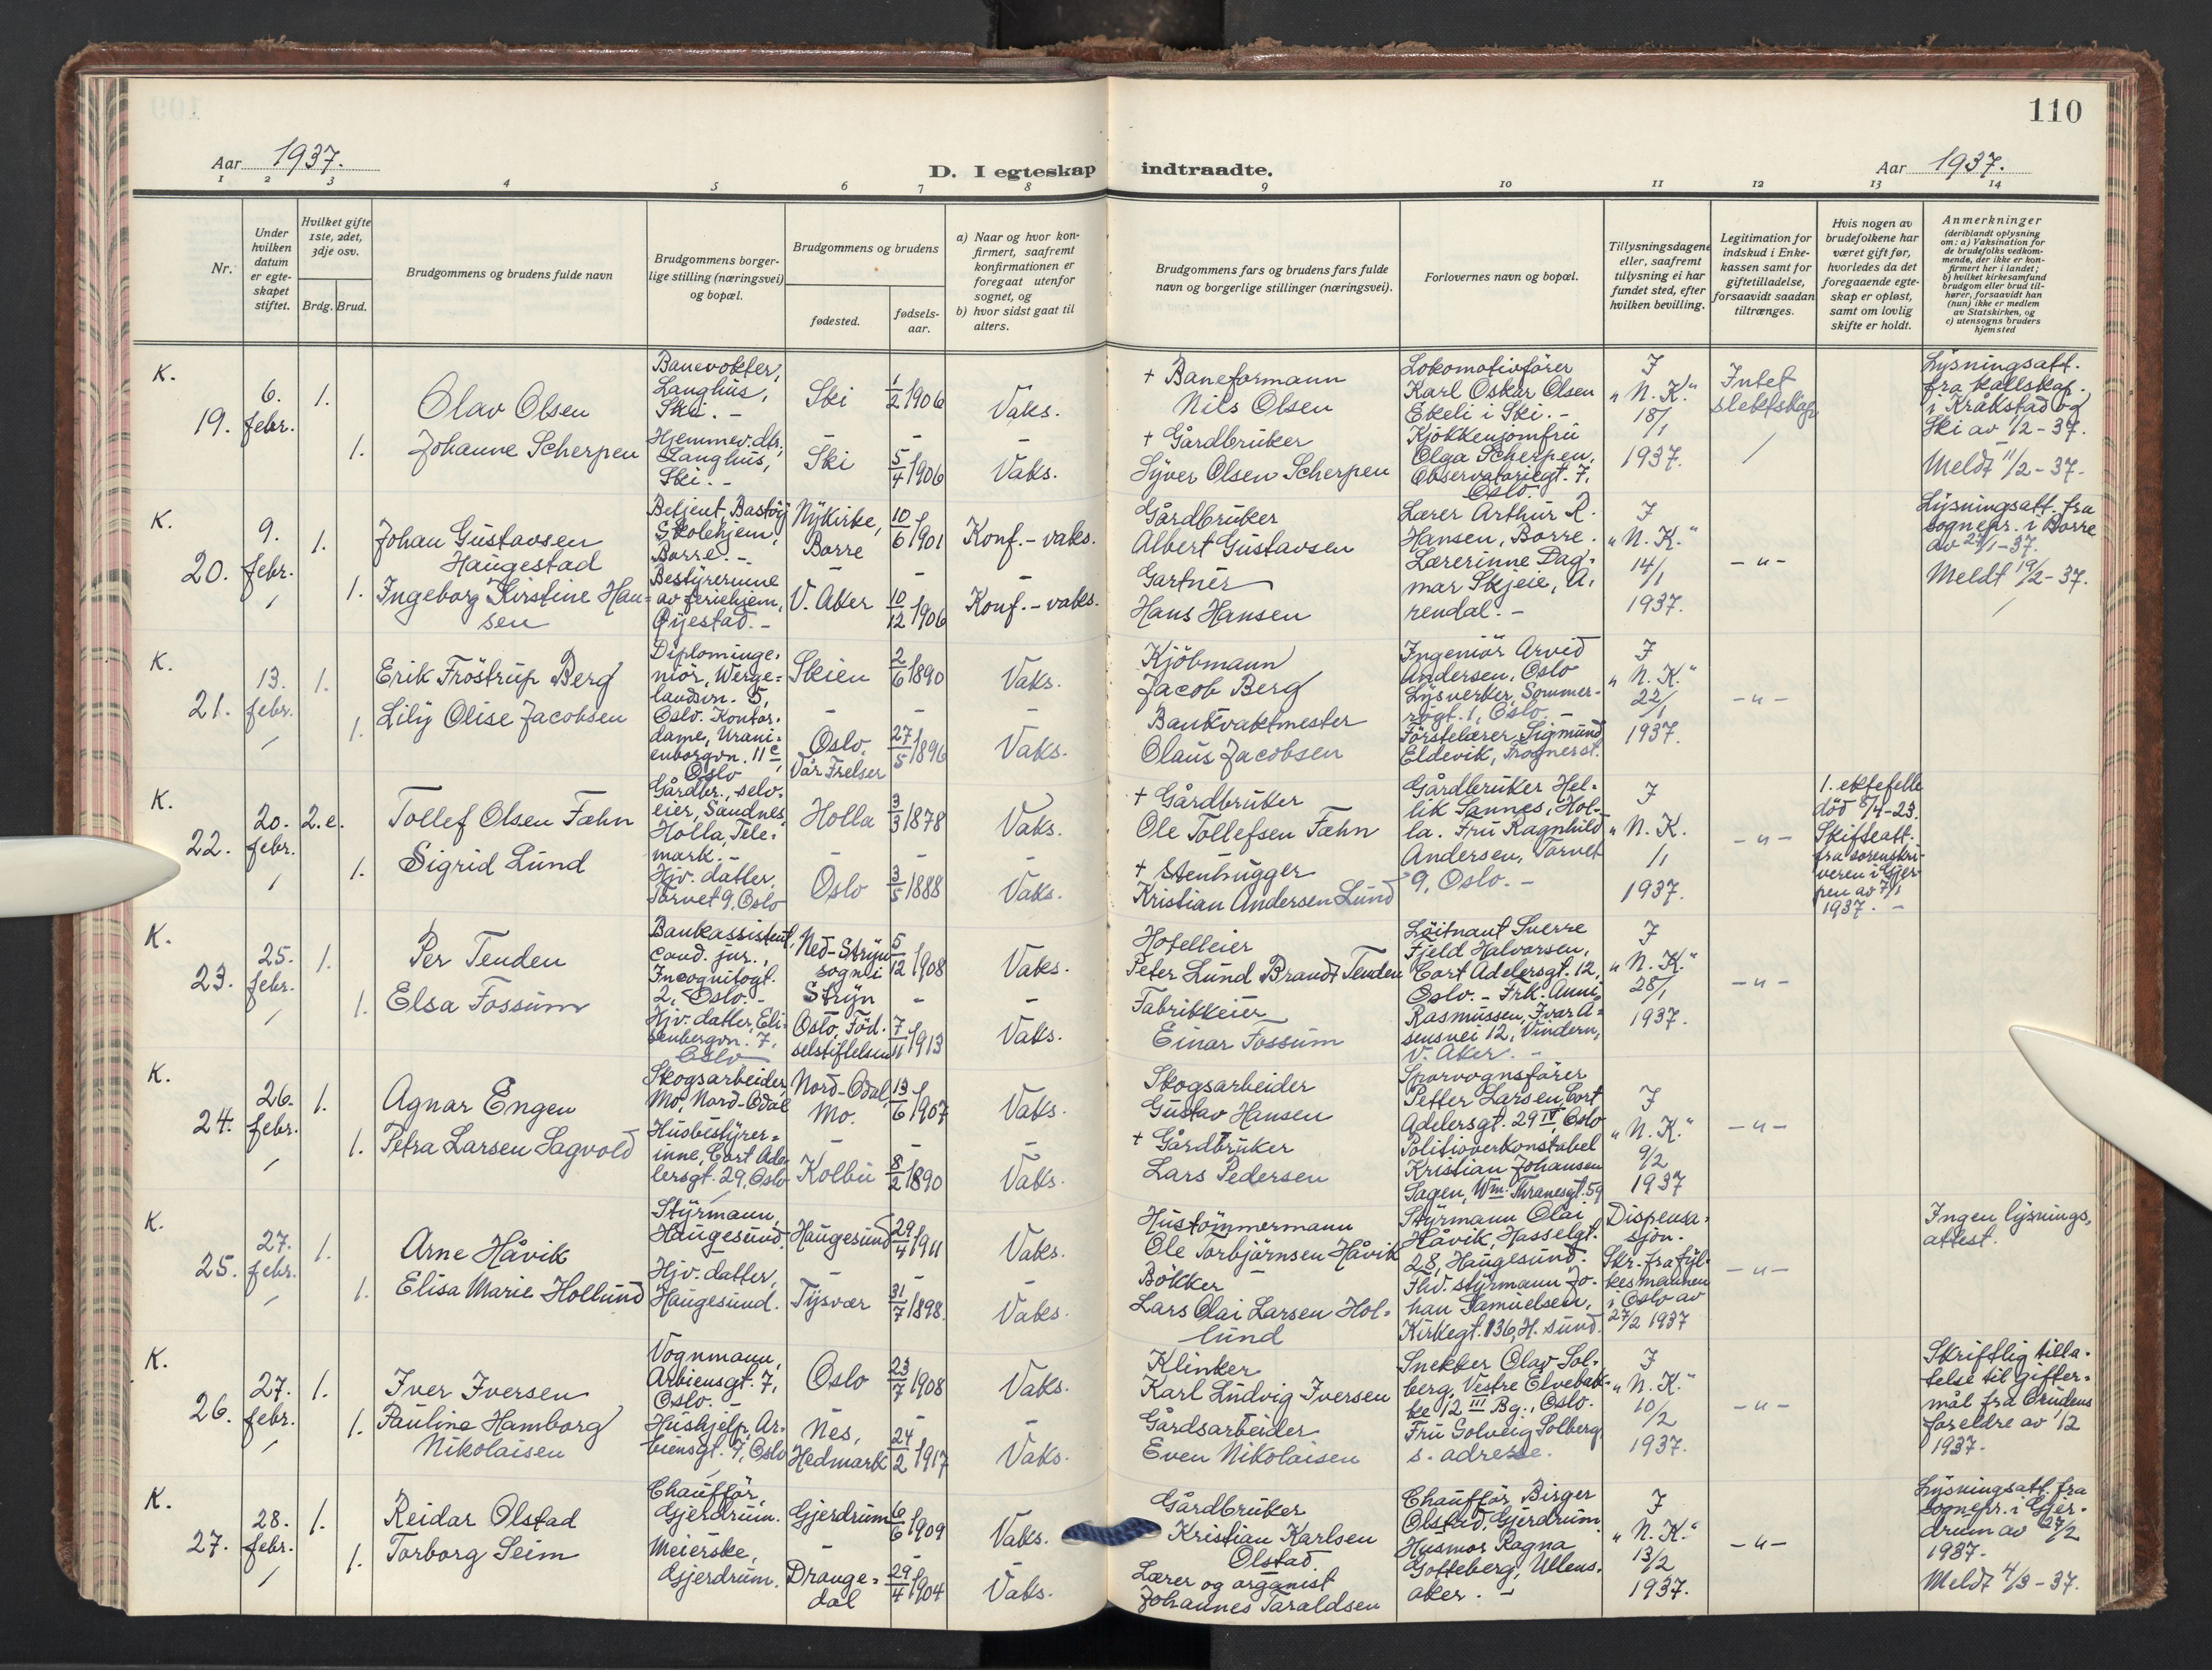 110
Aar 1937.
D. I egteskap indtraadte.
Aar 1937.
1 2 3 4 5 6 7 8 9 10 11 12 13 14
Nr.
Under hvilken datum er egte-skapet stiftet.
Hvilket gifte 1ste, 2det, 3dje osv.
Brdg. Brud.
Brudgommens og brudens fulde navn
Brudgommens borger-lige stilling (næringsvei) og bopæl.
Brudgommens og brudens
fødested.
fødsels-aar.
a) Naar og hvor kon-firmert, saafremt konfirmationen er foregaat utenfor sognet, og
b) hvor sidst gaat til alters.
Brudgommens fars og brudens fars fulde navn og borgerlige stillinger (næringsvei).
Forlovernes navn og bopæl.
Tillysningsdagene eller, saafremt tillysning ei har fundet sted, efter hvilken bevilling.
Legitimation for indskud i Enke-kassen samt for giftetilladelse, forsaavidt saadan tiltrænges.
Hvis nogen av brudefolkene har været gift før, hvorledes da det foregaaende egte-skap er opløst, samt om lovlig skifte er holdt.
Anmerkninger
(deriblandt oplysning om: a) Vaksination for de brudefolks vedkom-mende, der ikke er kon-firmert her i landet;
b) hvilket kirkesamfund brudgom eller brud til-hører, forsaavidt han (hun) ikke er medlem av Statskirken, og
c) utensogns bruders hjemsted
K.
19.
6. febr.
1.
Olav Olsen
Banevokter, Langhus, Ski. -
Ski
1/2 1906
Vaks.
+ Baneformann
Nils Olsen
Lokomotivfører
Karl Oskar Olsen
Ekeli i Ski. -
I
"N. K."
18/1
1937.
Intet slektskap
Lysningsatt.
i Kråkstad og
Ski av 1/2-37.
Meldt 11/2-37.
1.
Johanne Scherpen
Hjemmev. dtr., Langhus, Ski. -
Ski
5/4 1906
Vaks.
+ Gårdbruker
Syver Olsen Scherpen
Kjøkkenjomfru
Olga Scherpen,
Observatoriegt. 7,
Oslo.
K.
20.
9. febr.
1.
Johan Gustavsen
Haugestad
Betjent, Bastøy Skolehjem, Borre. -
Nykirke, Borre
10/6 1901
Konf. - vaks.
Gårdbruker
Albert Gustavsen
Lærer Arthur R.
Hansen, Borre.
I
"N. K."
14/1
1937.
- " -
Lysningsatt. fra
sognepr. i Borre
av 27/1-37.
Meldt 19/2-37.
1.
Ingeborg Kirstine Han=
sen
Bestyrerinne av feriehjem, Øyestad. -
V. Aker
10/12 1906
Konf. - vaks.
Gartner
Hans Hansen
Lærerinne Dag-
mar Skjeie, A.
rendal. -
K.
21.
13. febr.
1.
Erik Fröstrup Berg
Diplominge-niör, Werge-landsvn. 5, Oslo.
Skien
2/6 1890
Vaks.
Kjöbmann
Jacob Berg
Ingeniör Arvid
Andersen, Oslo
Lysverker, Sommer-
rogt. 1, Oslo. -
I
"N. K."
22/1
1937.
- " -
1.
Lily Olise Jacobsen
Kontor-dame, Urani-enborgvn. 11 c, Oslo
Oslo, Vår Frelser
27/5 1896
Vaks.
Bankvaktmester
Olaus Jacobsen
Förstelærer Sigmund
Eldevik, Frognerst.
K.
22.
20. febr.
2. e.
Tollef Olsen Fæhn
Gårdbr., selv-eier, Sandnes, Holla, Tele-mark. -
Holla
3/3 1878
Vaks.
+ Gårdbruker
Ole Tollefsen Fæhn
Gårdbruker Hel-
lik Sannes, Hol-
la. Fru Ragnhild
Andersen, Torvet
9, Oslo. -
I
"N. K.
1/1
1937.
- " -
1. ektefelle
död 5/4-23.
Skifteatt.
fra sorenskri-
veren i Gjer-
pen av 7/1
1937. -
1.
Sigrid Lund
Hjv. datter, Torvet 9, Oslo
Oslo
3/5 1888
Vaks.
+ Stenhugger
Kristian Andersen Lund
K.
23.
25. febr.
1.
Per Tenden
Bankassistent, cand. jur., Incognitogt. 2, Oslo. -
Ned-Stryn sogn i Stryn
5/12 1908
Vaks.
Hotelleier
Peter Lund Brandt Tenden
Löitnant Sverre
Fjeld Halvorsen,
Cort Adelersgt. 12,
Oslo. - Frk. Anni
Rasmussen, Ivar A=
sensvei 12, Vindern,
V. Aker. -
I
"N. K."
28/1
1937.
- " -
1.
Elsa Fossum
Hjv. datter, Eli-senbergvn. 7, Oslo
Oslo, Föd-selstiftelsen
7/11 1913
Vaks.
Fabrikkeier
Einar Fossum
K.
24.
26. febr.
1.
Agnar Engen
Skogsarbeider, Mo, Nord-Odal
Nord-Odal, Mo.
13/6 1907
Vaks.
Skogsarbeider
Gustav Hansen
Sporvognsfører
Petter Larsen, Cort
Adelersgt. 29 IV, Oslo
I
"N. K."
9/2
1937
- " -
1.
Petra Larsen Sagvold
Husbestyrer=inne, Cort Ade-lersgt. 29, Oslo
Kolbu
8/2 1890
Vaks.
+ Gårdbruker
Lars Pedersen
Politioverkonstabel
Kristian Johansen
Sagen, Wm. Thranesgt. 59
K.
25.
27. febr.
1.
Arne Håvik
Styrmann, Haugesund.
Haugesund
29/4 1911
Vaks.
Hustömmermann
Ole Torbjörnsen Håvik
Styrmann Olai
Håvik, Hasselgt.
28, Haugesund.
Dispensa-
sjon.
Skr. fra fyl-
kesmannen
i Oslo av
27/2 1937
- " -
Ingen lysnings-
attest.
1.
Elisa Marie Hollund
Hjv. datter, Haugesund.
Tysvær
31/7 1898.
Vaks.
Bökker
Lars Olai Larsen Hol=
lund
Fhv. styrmann Jo-
han Samuelsen,
Kirkegt. 136, H. sund.
K.
26.
27. febr.
1.
Iver Iversen
Vognmann, Arbiensgt. 7, Oslo. -
Oslo
23/7 1908
Vaks.
Klinker
Karl Ludvig Iversen
Snekker Olav Sol-
berg, Vestre Elvebak-
ke 12 III Bg., Oslo.
I
"N. K."
10/2
1937.
- " -
Skriftlig tilla-
telse til gifter-
mål fra brudens
foreldre av 1/12
1937.
1.
Pauline Hamborg
Nikolaisen
Hushjelp, Ar-biensgt. 7, Oslo
Nes, Hedmark
24/2 1917
Vaks.
Gårdsarbeider
Even Nikolaisen
Fru Solveig Solberg
s. adresse.
K.
27.
28. febr.
1.
Reidar Olstad
Chaufför, Gjerdrum.
Gjerdrum
6/6 1909
Vaks.
Gårdbruker
Kristian Karlsen
Olstad
Chaufför Birger
Olstad, Gjerdrum
I
"N. K."
13/2
1937.
- " -
Lysningsatt. fra
sognepr. i Gjer-
drum av 27/2
1937.
Meldt 4/3-37.
1.
Torborg Seim
Meierske, Gjerdrum.
Drange=dal
29/4 1904
Vaks.
Lærer og organist
Johannes Taraldsen
Husmor Ragna
Gotteberg, Ullens-
aker. -